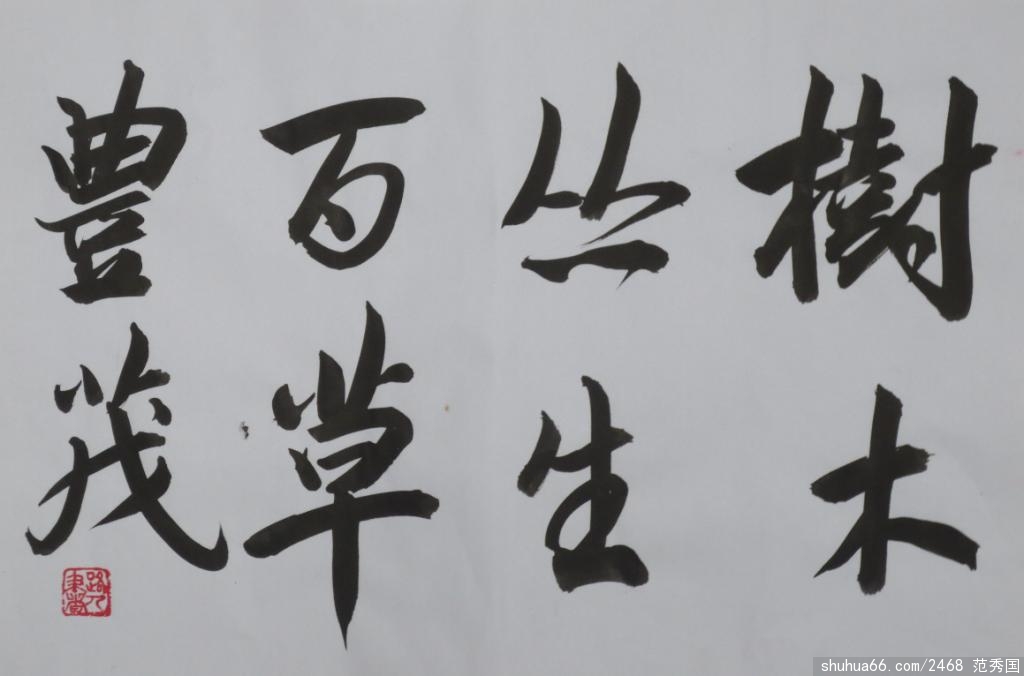 樹木
丛生
百草
豊茂
shuhua66.com/2468 范秀国